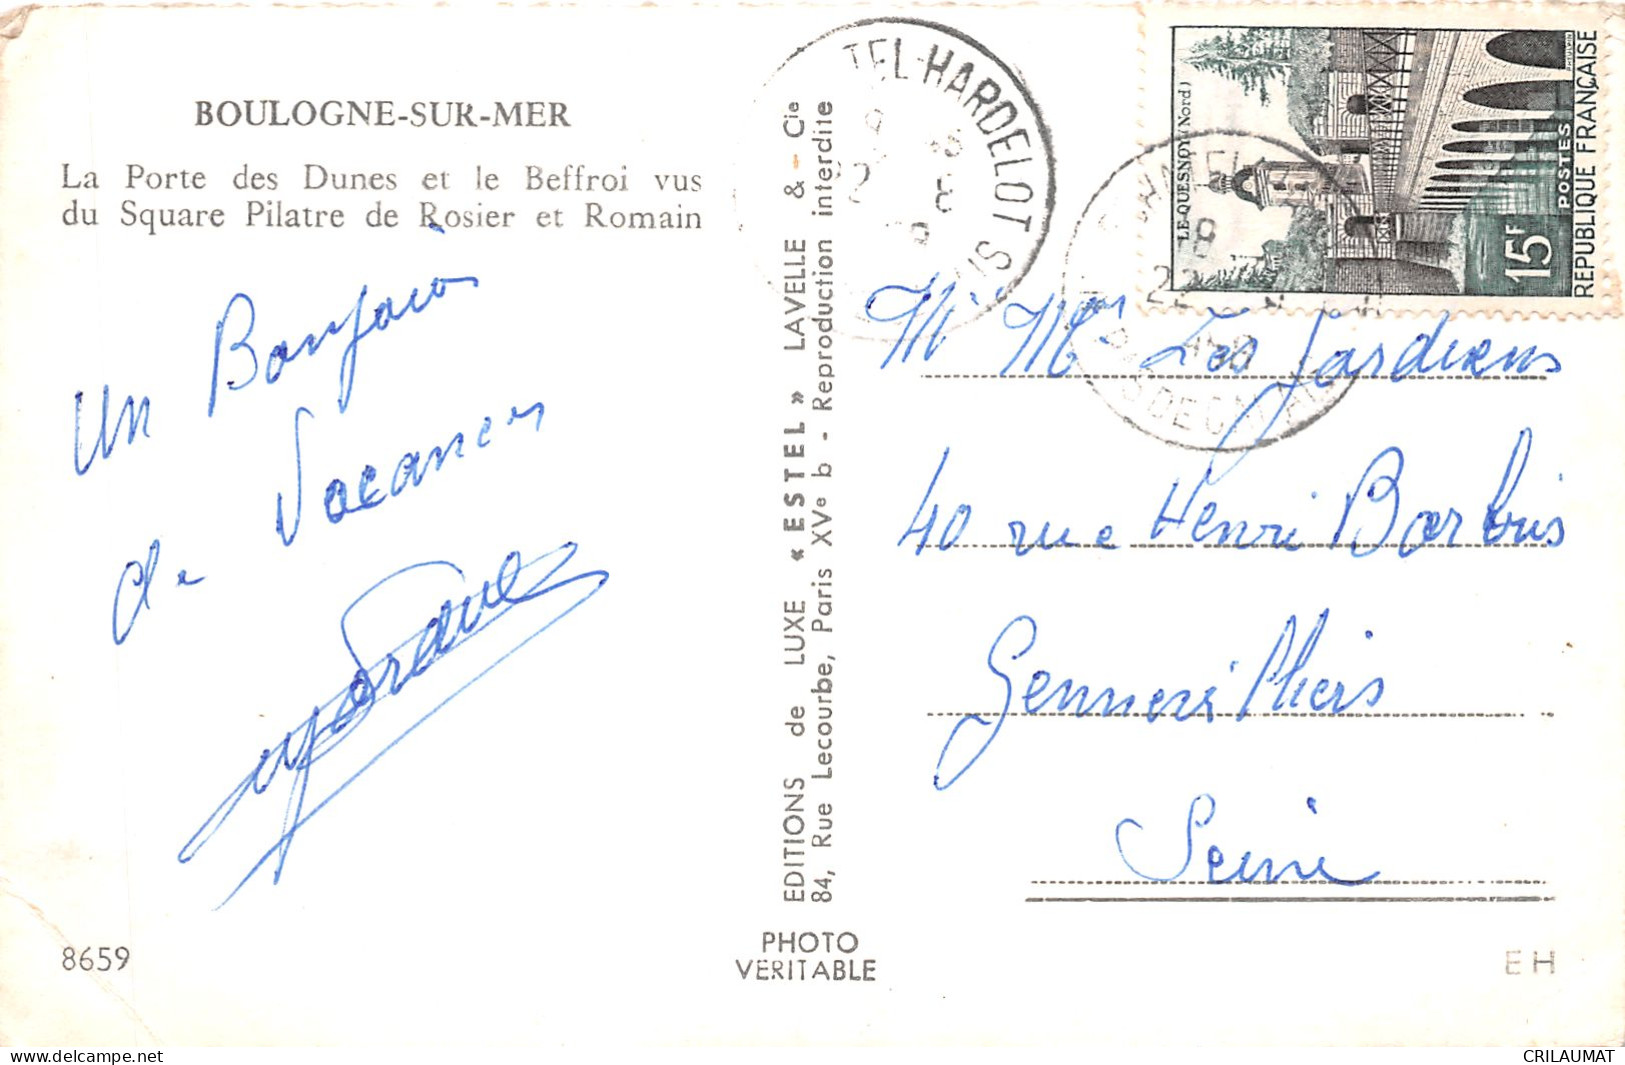 BOULOGNE-SUR-MER
La Porte des Dunes et le Beffroi vus
du Square Pilatre de Rosier et Romain
Un Bonjour
de Vacances
8659
EDITIONS de LUXE « ESTEL » LAVELLE & Cie
84, Rue Lecourbe, Paris XVe b - Reproduction interdite
PHOTO
VÉRITABLE
TEL-HARDELOT
LE QUESNOY (Nord)
15F
POSTES
REPUBLIQUE FRANÇAISE
PAS DE CALAIS
Mr Mme Les Jardiens
40 rue Henri Barbus
Gennevilliers
Seine
EH
29/05/2024
CRILAUMAT